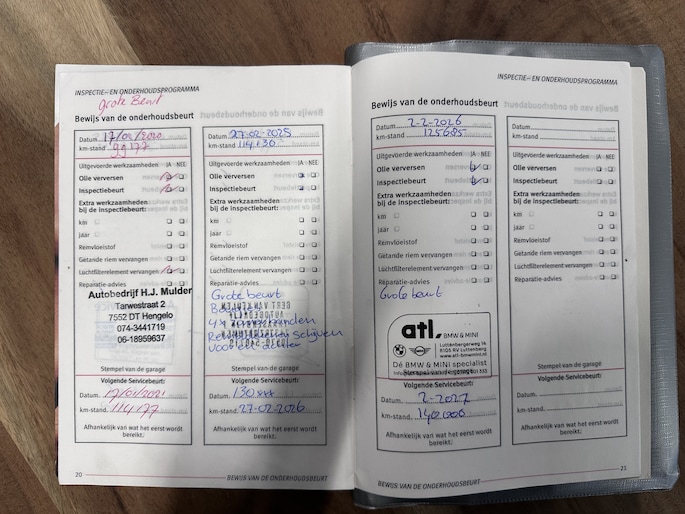 INSPECTIE- EN ONDERHOUDSPROGRAMMA
Grote Beurt
Bewijs van de onderhoudsbeurt
Datum
km-stand 99177
Uitgevoerde werkzaamheden JA NEE
Olie verversen
Inspectiebeurt
Extra werkzaamheden
bij de inspectiebeurt:
km
jaar
Remvloeistof
Getande riem vervangen
Luchtfilterelement vervangen
Reparatie-advies
Autobedrijf H.J. Mulder
Tarwestraat 2
7552 DT Hengelo
074-3441719
06-18959637
Stempel van de garage
Volgende Servicebeurt:
Datum 17/01/2021
km-stand 114177
Afhankelijk van wat het eerst wordt
bereikt.
20
Datum 27-02-2025
km-stand 114130
Uitgevoerde werkzaamheden JA NEE
Olie verversen
Inspectiebeurt
Extra werkzaamheden
bij de inspectiebeurt:
km
jaar
Remvloeistof
Getande riem vervangen
Luchtfilterelement vervangen
Reparatie-advies
Grote beurt
4x
schijven
voor en achter
Stempel van de garage
Volgende Servicebeurt:
Datum 130xxx
km-stand 27-02-2026
Afhankelijk van wat het eerst wordt
bereikt.
BEWIJS VAN DE ONDERHOUDSBEURT
INSPECTIE- EN ONDERHOUDSPROGRAMMA
Bewijs van de onderhoudsbeurt
Datum 2-2-2026
km-stand 125685
Uitgevoerde werkzaamheden JA NEE
Olie verversen
Inspectiebeurt
Extra werkzaamheden
bij de inspectiebeurt:
km
jaar
Remvloeistof
Getande riem vervangen
Luchtfilterelement vervangen
Reparatie-advies
Grote beurt
atl. BMW & MINI
Luttenbergerweg 14
8105 RV Luttenberg
www.atl-bmwmini.nl
Dé BMW & MINI specialist
Stempel van de garage
Volgende Servicebeurt:
Datum 2-2027
km-stand 140.000
Afhankelijk van wat het eerst wordt
bereikt.
Datum
km-stand
Uitgevoerde werkzaamheden JA NEE
Olie verversen
Inspectiebeurt
Extra werkzaamheden
bij de inspectiebeurt:
km
jaar
Remvloeistof
Getande riem vervangen
Luchtfilterelement vervangen
Reparatie-advies
Stempel van de garage
Volgende Servicebeurt:
Datum
km-stand
Afhankelijk van wat het eerst wordt
bereikt.
BEWIJS VAN DE ONDERHOUDSBEURT
21